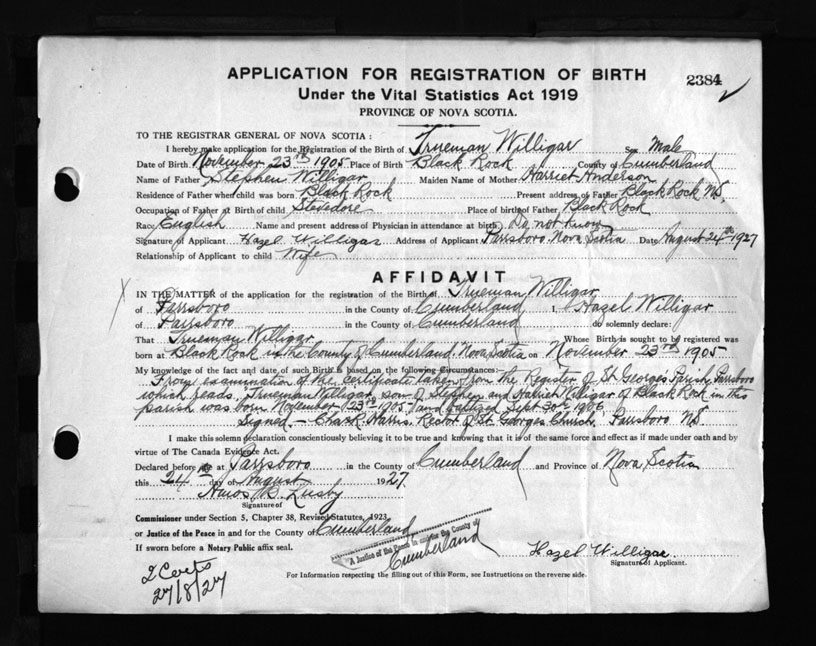 APPLICATION FOR REGISTRATION OF BIRTH
2384
Under the Vital Statistics Act 1919
PROVINCE OF NOVA SCOTIA.
TO THE REGISTRAR GENERAL OF NOVA SCOTIA:
I hereby make application for the Registration of the Birth of Trueman Willigar Sex Male
Date of Birth November 23rd 1905 Place of Birth Black Rock County of Cumberland
Name of Father Stephen Willigar Maiden Name of Mother Harriet Anderson
Residence of Father when child was born Black Rock Present address of Father Black Rock N.S.
Occupation of Father at Birth of child Stevedore Place of birth of Father Black Rock
Race English Name and present address of Physician in attendance at birth Do not know
Signature of Applicant Hazel Willigar Address of Applicant Parrsboro Nova Scotia Date August 24th 1927
Relationship of Applicant to child Wife
AFFIDAVIT
IN THE MATTER of the application for the registration of the Birth of Trueman Willigar
of Parrsboro in the County of Cumberland I, Hazel Willigar
of Parrsboro in the County of Cumberland do solemnly declare:
That Trueman Willigar Whose Birth is sought to be registered was
born at Black Rock in the County of Cumberland Nova Scotia on November 23rd 1905
My knowledge of the fact and date of such Birth is based on the following Circumstances:
From examination of the certificate taken from the Register of St. George's Parish, Parrsboro
which reads, Trueman Willigar, son of Stephen and Harriet Willigar of Black Rock in this
parish was born November 23rd 1905 and baptized Sept 30th 1906
Signed. - Chas. R. Harris. Rector of St. Georges Church, Parrsboro N.S.
I make this solemn declaration conscientiously believing it to be true and knowing that it is of the same force and effect as if made under oath and by
virtue of The Canada Evidence Act.
Declared before me at Parrsboro in the County of Cumberland and Province of Nova Scotia
this 24 day of August 1927.
Amos B. Lusby
Signature of
Commissioner under Section 5, Chapter 38, Revised Statutes, 1923
or Justice of the Peace in and for the County of Cumberland
A Justice of the Peace in and for the County of
Cumberland
If sworn before a Notary Public affix seal.
Hazel Willigar
Signature of Applicant.
2 Certs
27/8/27
For Information respecting the filling out of this Form, see Instructions on the reverse side.